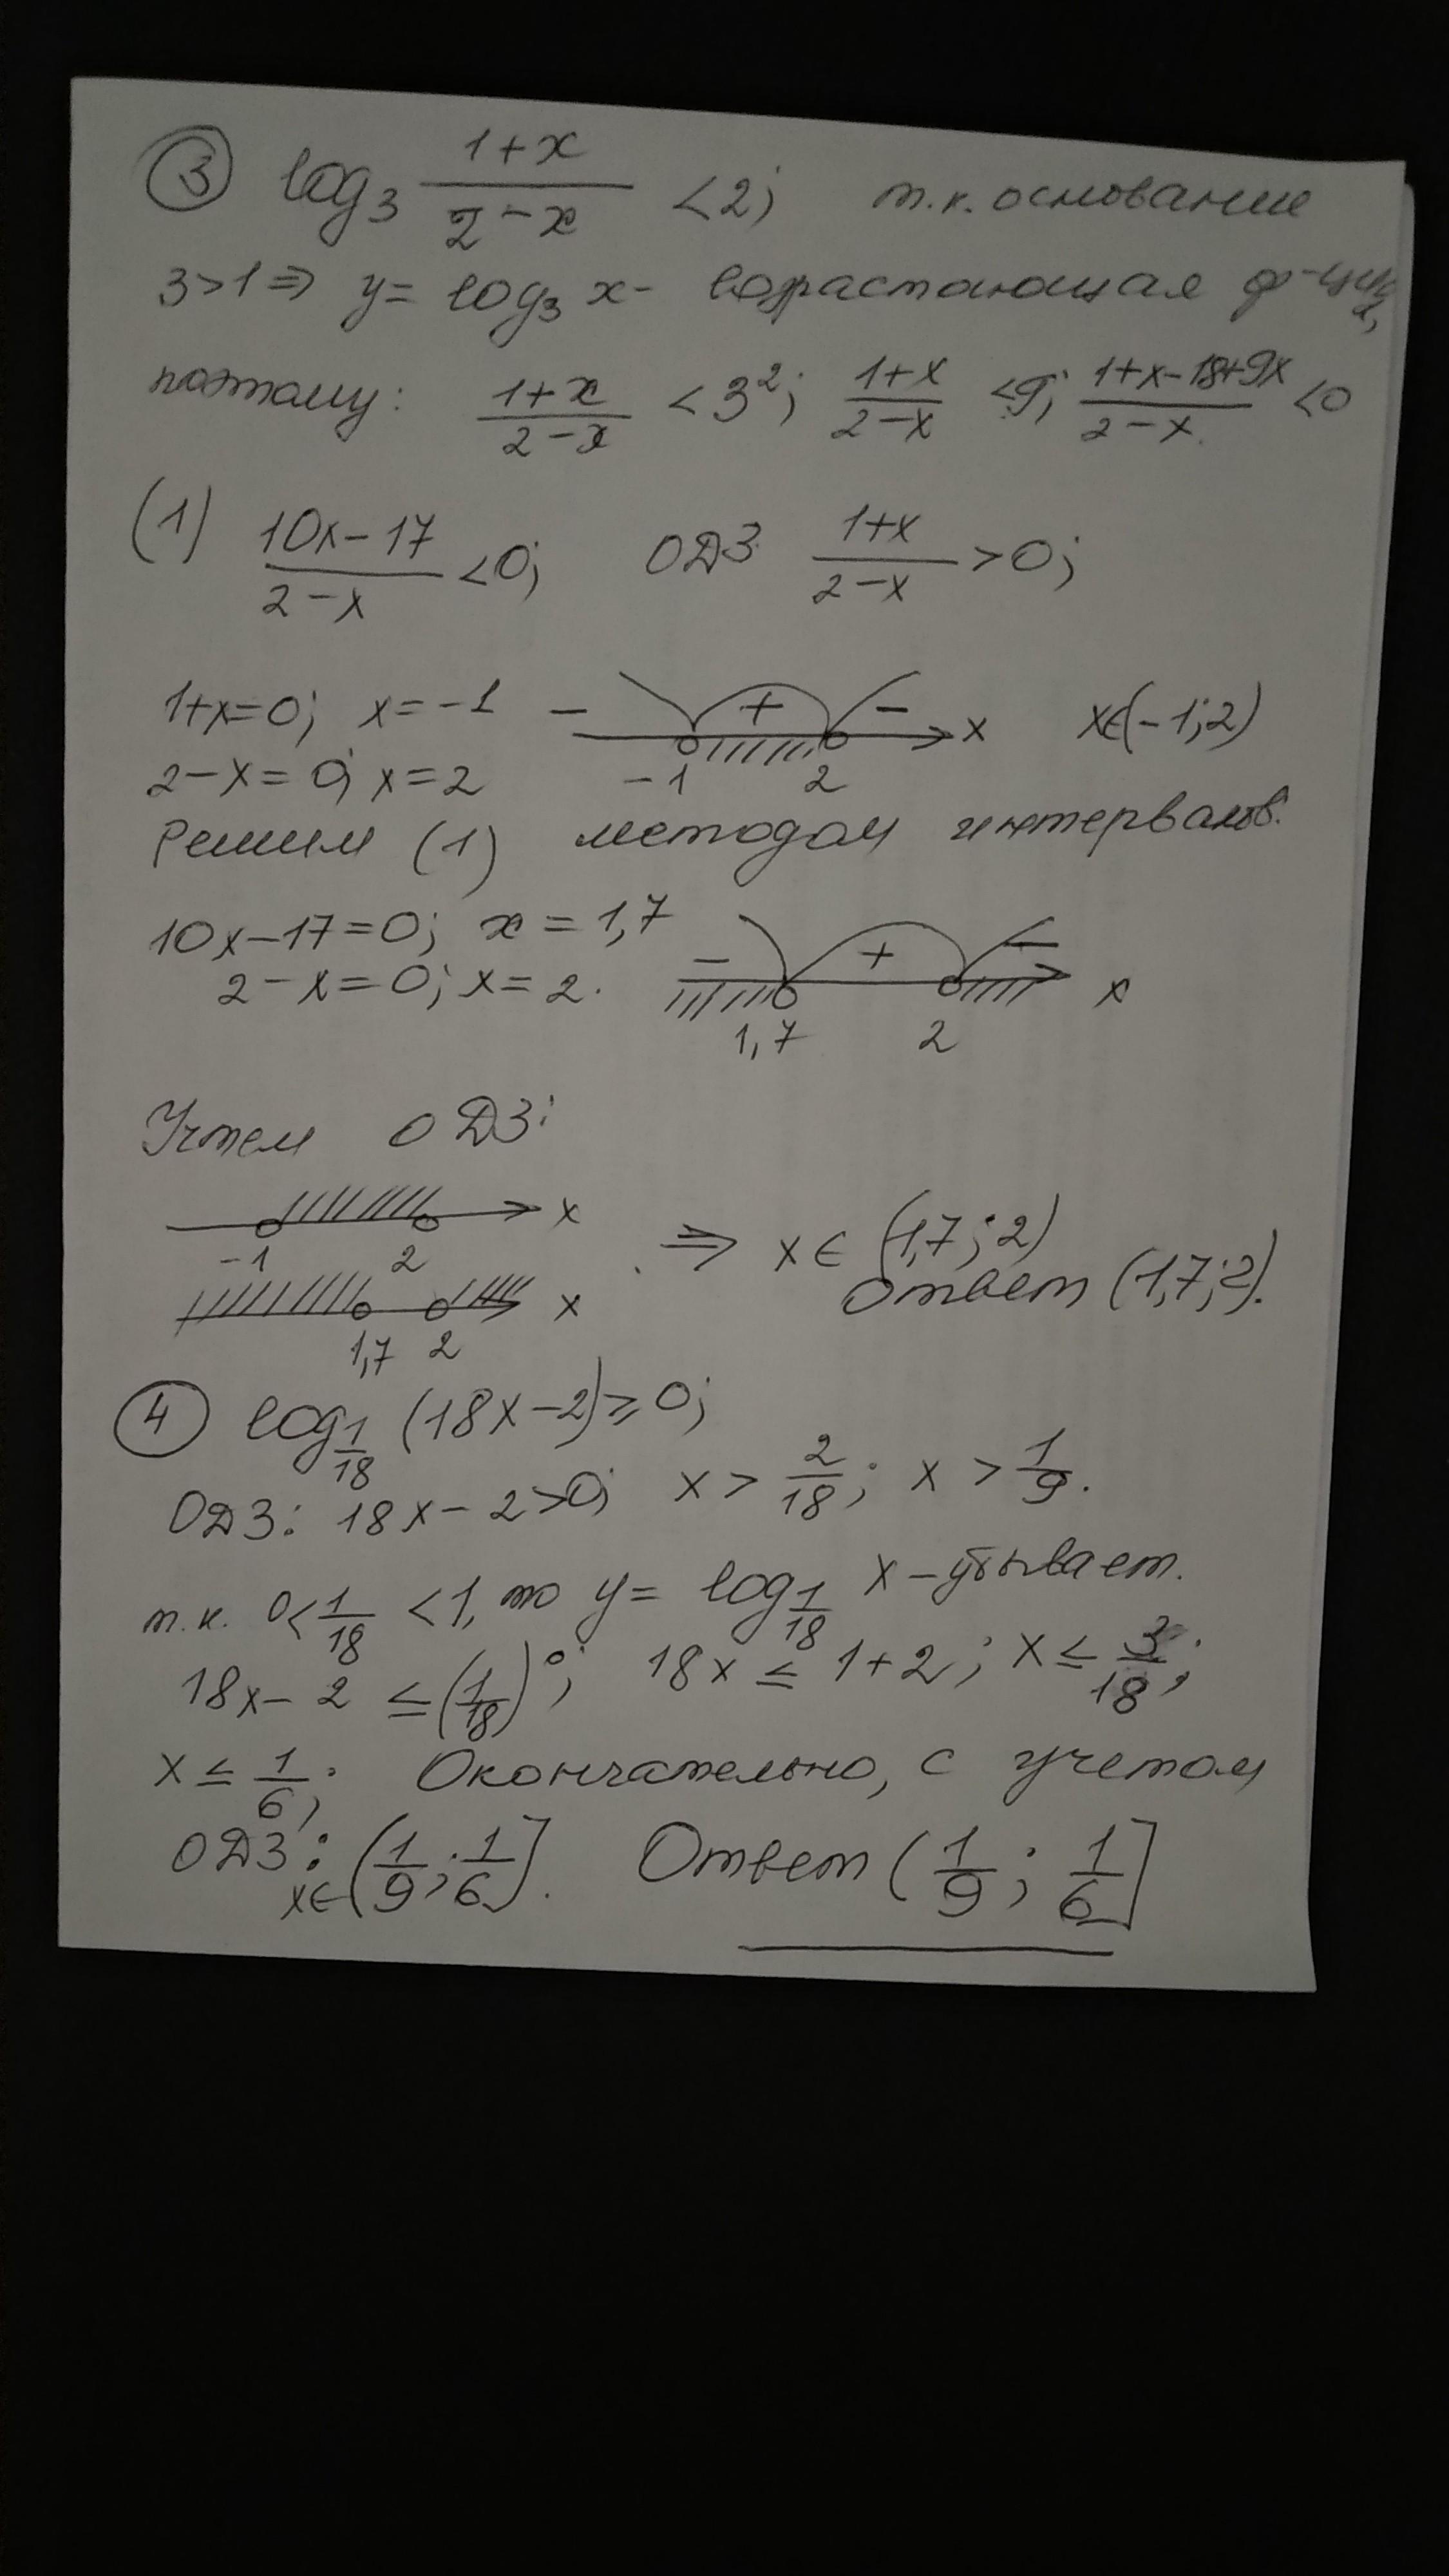 ③ log₃ (1+x)/(2-x) < 2; т.к. основание
3>1 ⇒ y = log₃ x - возрастающая ф-ция,
поэтому: (1+x)/(2-x) < 3²; (1+x)/(2-x) < 9; (1+x-18+9x)/(2-x) < 0
(1) (10x-17)/(2-x) < 0; ОДЗ (1+x)/(2-x) > 0;
1+x=0; x=-1 - + - x x∈(-1;2)
2-x=0; x=2 -1 2
Решим (1) методом интервалов.
10x-17=0; x=1,7 - + -
2-x=0; x=2. x
1,7 2
Учтем ОДЗ:
x
-1 2 ⇒ x∈(1,7;2)
x Ответ (1,7;2).
1,7 2
④ log_{1/18} (18x-2) ≥ 0;
ОДЗ: 18x-2>0; x > 2/18; x > 1/9.
т.к. 0<1/18<1, то y = log_{1/18} x - убывает.
18x-2 ≤ (1/18)⁰; 18x ≤ 1+2; x ≤ 3/18;
x ≤ 1/6; Окончательно, с учетом
ОДЗ: x∈(1/9; 1/6]. Ответ (1/9; 1/6]